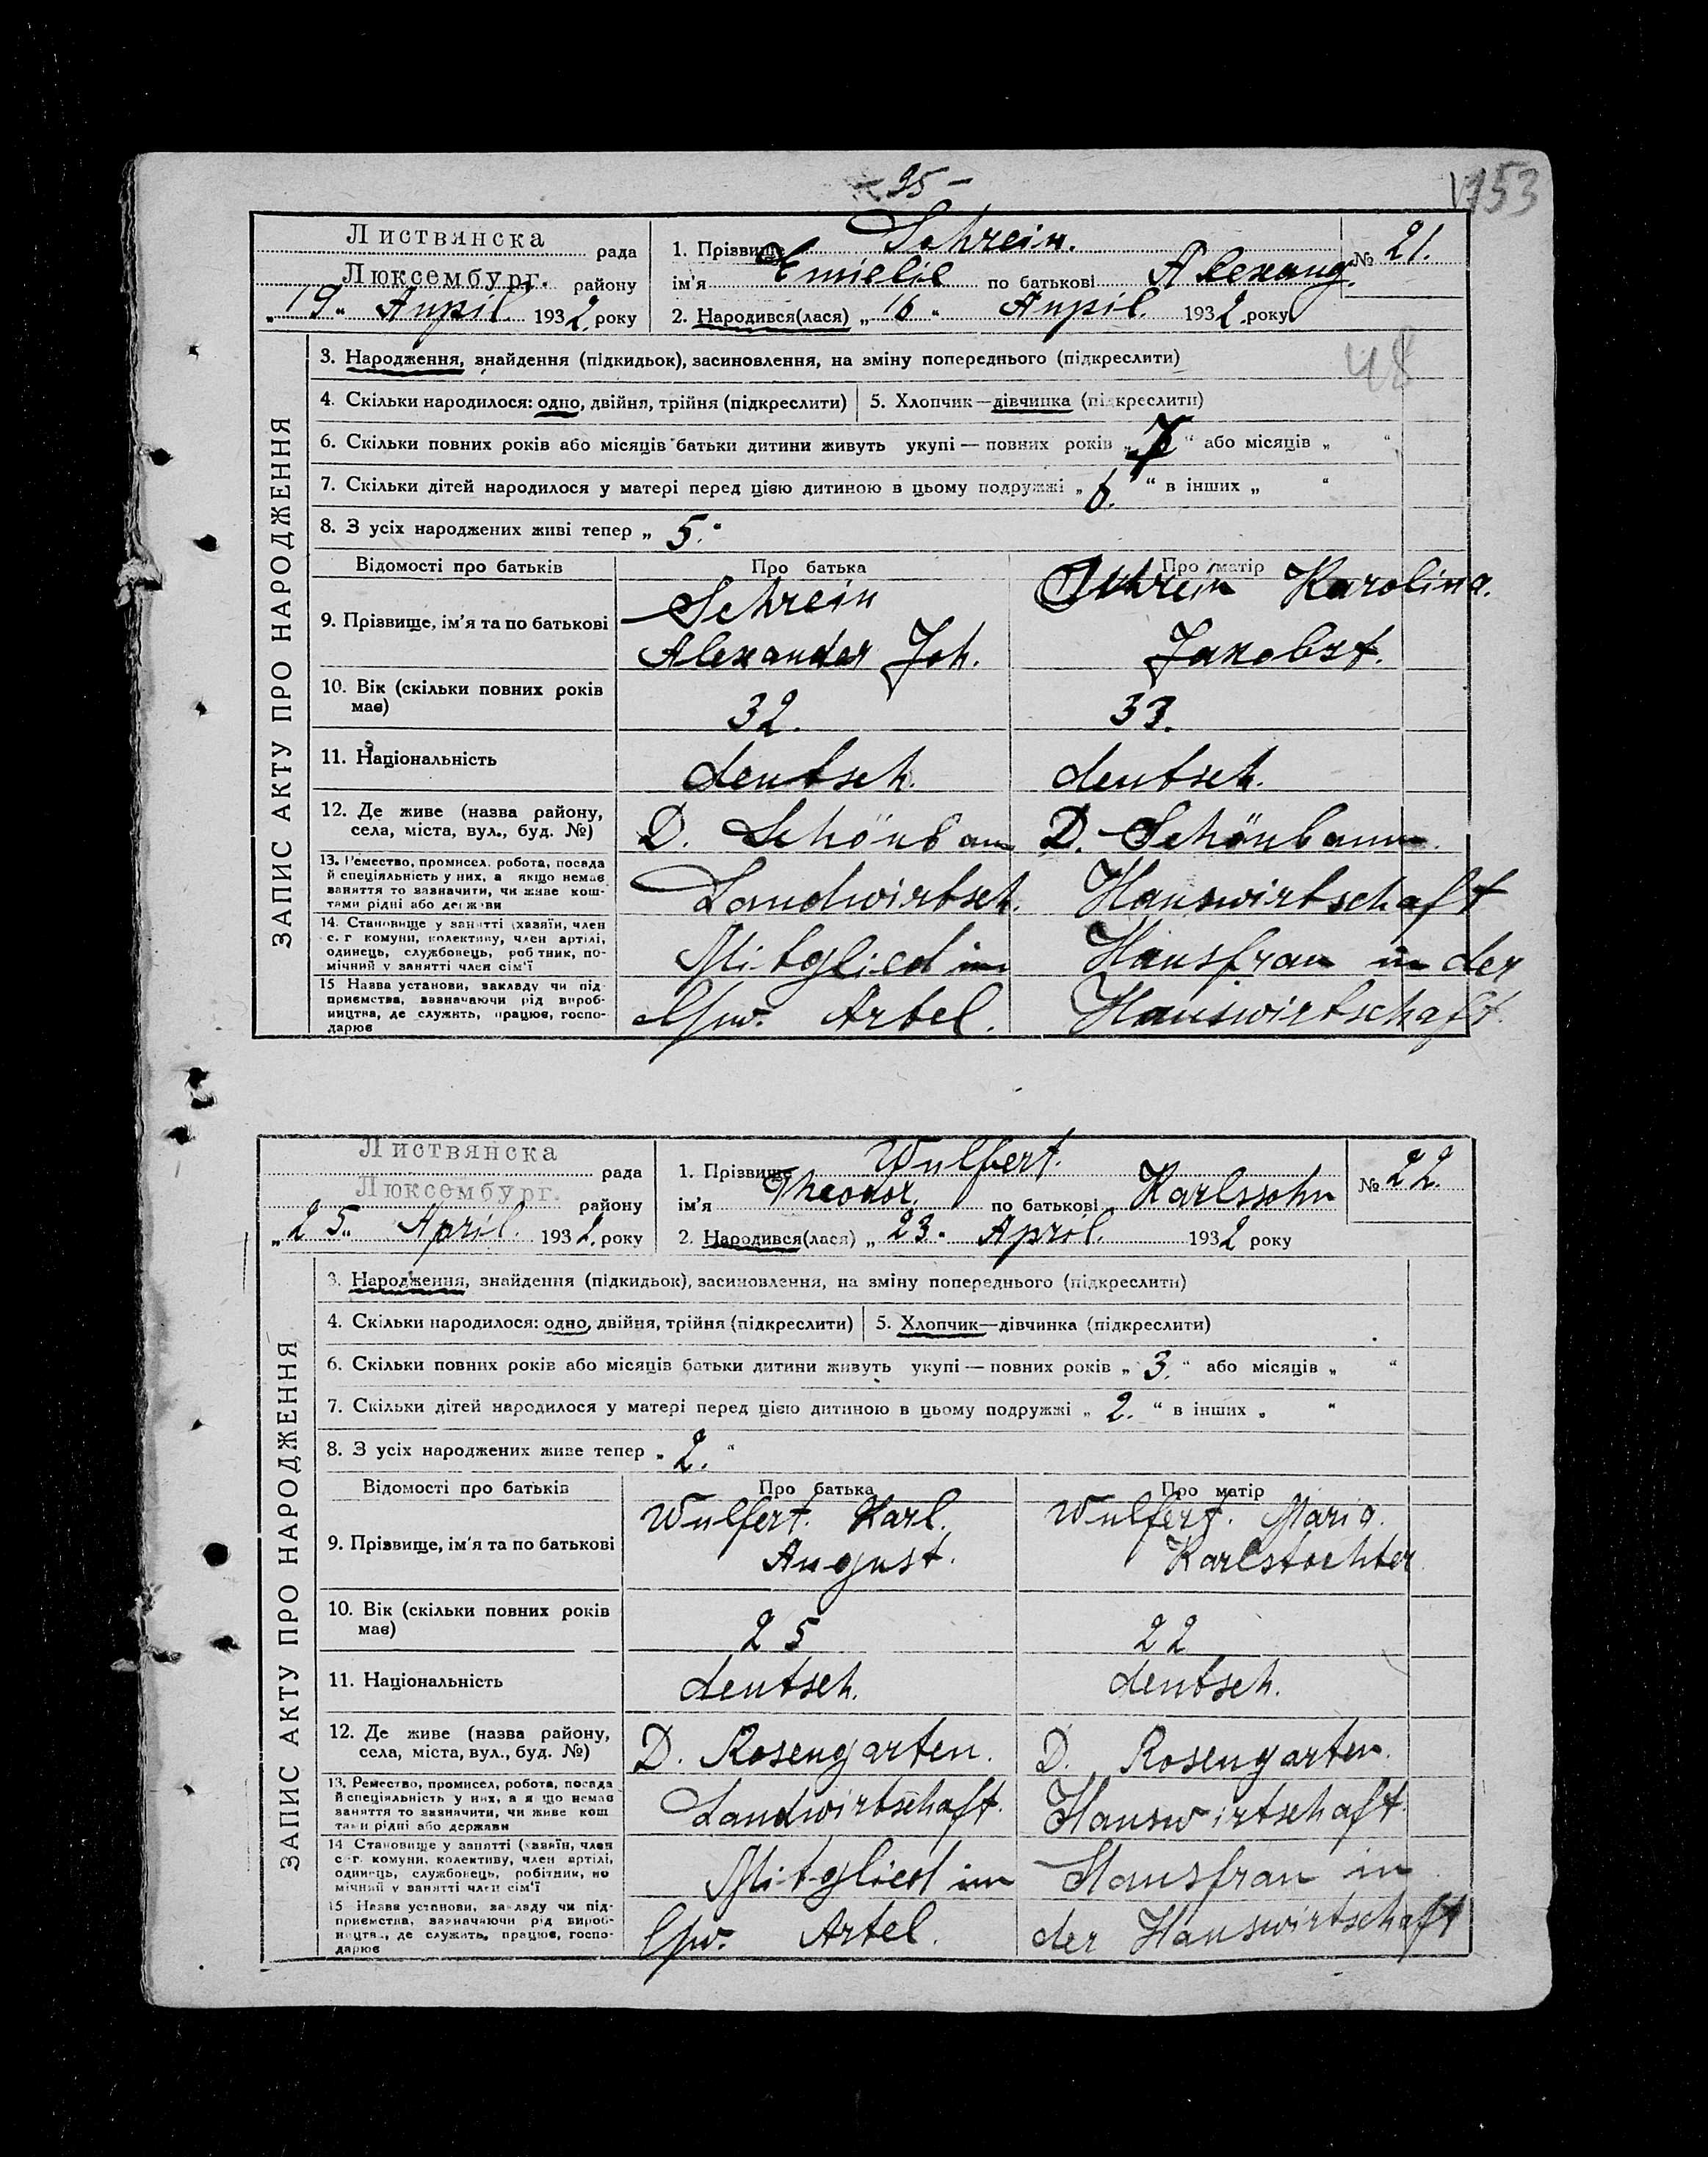 - 25 -
153
Листвянска рада
Люксембург. району
„19“ Апріl 1932. року
1. Прізвище Schrein.
ім'я Emielie по батькові Alexand.
№ 21.
2. Народився(лася) „16“ Апріl. 1932. року
48
ЗАПИС АКТУ ПРО НАРОДЖЕННЯ
3. Народження, знайдення (підкидьок), засиновлення, на зміну попереднього (підкреслити)
4. Скільки народилося: одно, двійня, трійня (підкреслити) 5. Хлопчик—дівчинка (підкреслити)
6. Скільки повних років або місяців батьки дитини живуть укупі — повних років „7“ або місяців „ “
7. Скільки дітей народилося у матері перед цією дитиною в цьому подружжі „6.“ в інших „ “
8. З усіх народжених живі тепер „5.“
Відомості про батьків Про батька Про матір
9. Прізвище, ім'я та по батькові
Schrein Schrein Karolina.
Alexander Joh. Jakobst.
10. Вік (скільки повних років має) 32. 33.
11. Національність deutsch. deutsch.
12. Де живе (назва району, села, міста, вул., буд. №) D. Schönbaum D. Schönbaum.
13. Ремество, промисел, робота, посада й спеціяльність у них, а якщо немає заняття то зазначити, чи живе коштами рідні або держави
Landwirtsch. Hauswirtschaft
14. Становище у занятті (хазяїн, член с. г. комуни, колективу, член артілі, одинець, службовець, робітник, помічний у занятті член сім'ї
Mitglied im Hausfrau in der
15 Назва установи, закладу чи підприємства, зазначаючи рід виробництва, де служить, працює, господарює
lfw. Artel. Hauswirtschaft.
Листвянска рада
Люксембург. району
„25“ April. 1932. року
1. Прізвище Wulfert.
ім'я Theodor. по батькові Karlssohn
№ 22.
2. Народився(лася) „23“ April. 1932 року
ЗАПИС АКТУ ПРО НАРОДЖЕННЯ
3. Народження, знайдення (підкидьок), засиновлення, на зміну попереднього (підкреслити)
4. Скільки народилося: одно, двійня, трійня (підкреслити) 5. Хлопчик—дівчинка (підкреслити)
6. Скільки повних років або місяців батьки дитини живуть укупі — повних років „3.“ або місяців „ “
7. Скільки дітей народилося у матері перед цією дитиною в цьому подружжі „2.“ в інших „ “
8. З усіх народжених живе тепер „2.“
Відомості про батьків Про батька Про матір
9. Прізвище, ім'я та по батькові
Wulfert. Karl. Wulfert. Maria.
August. Karlstochter
10. Вік (скільки повних років має) 25 22
11. Національність deutsch. deutsch.
12. Де живе (назва району, села, міста, вул., буд. №) D. Rosengarten. D. Rosengarten.
13. Ремество, промисел, робота, посада й спеціяльність у них, а якщо немає заняття то зазначити, чи живе коштами рідні або держави
Landwirtschaft. Hauswirtschaft.
14 Становище у занятті (хазяїн, член с. г. комуни, колективу, член артілі, одинець, службовець, робітник, помічний у занятті член сім'ї
Mitglied im Hausfrau in
15 Назва установи, закладу чи підприємства, зазначаючи рід виробництва, де служить, працює, господарює
lfw. Artel. der Hauswirtschaft